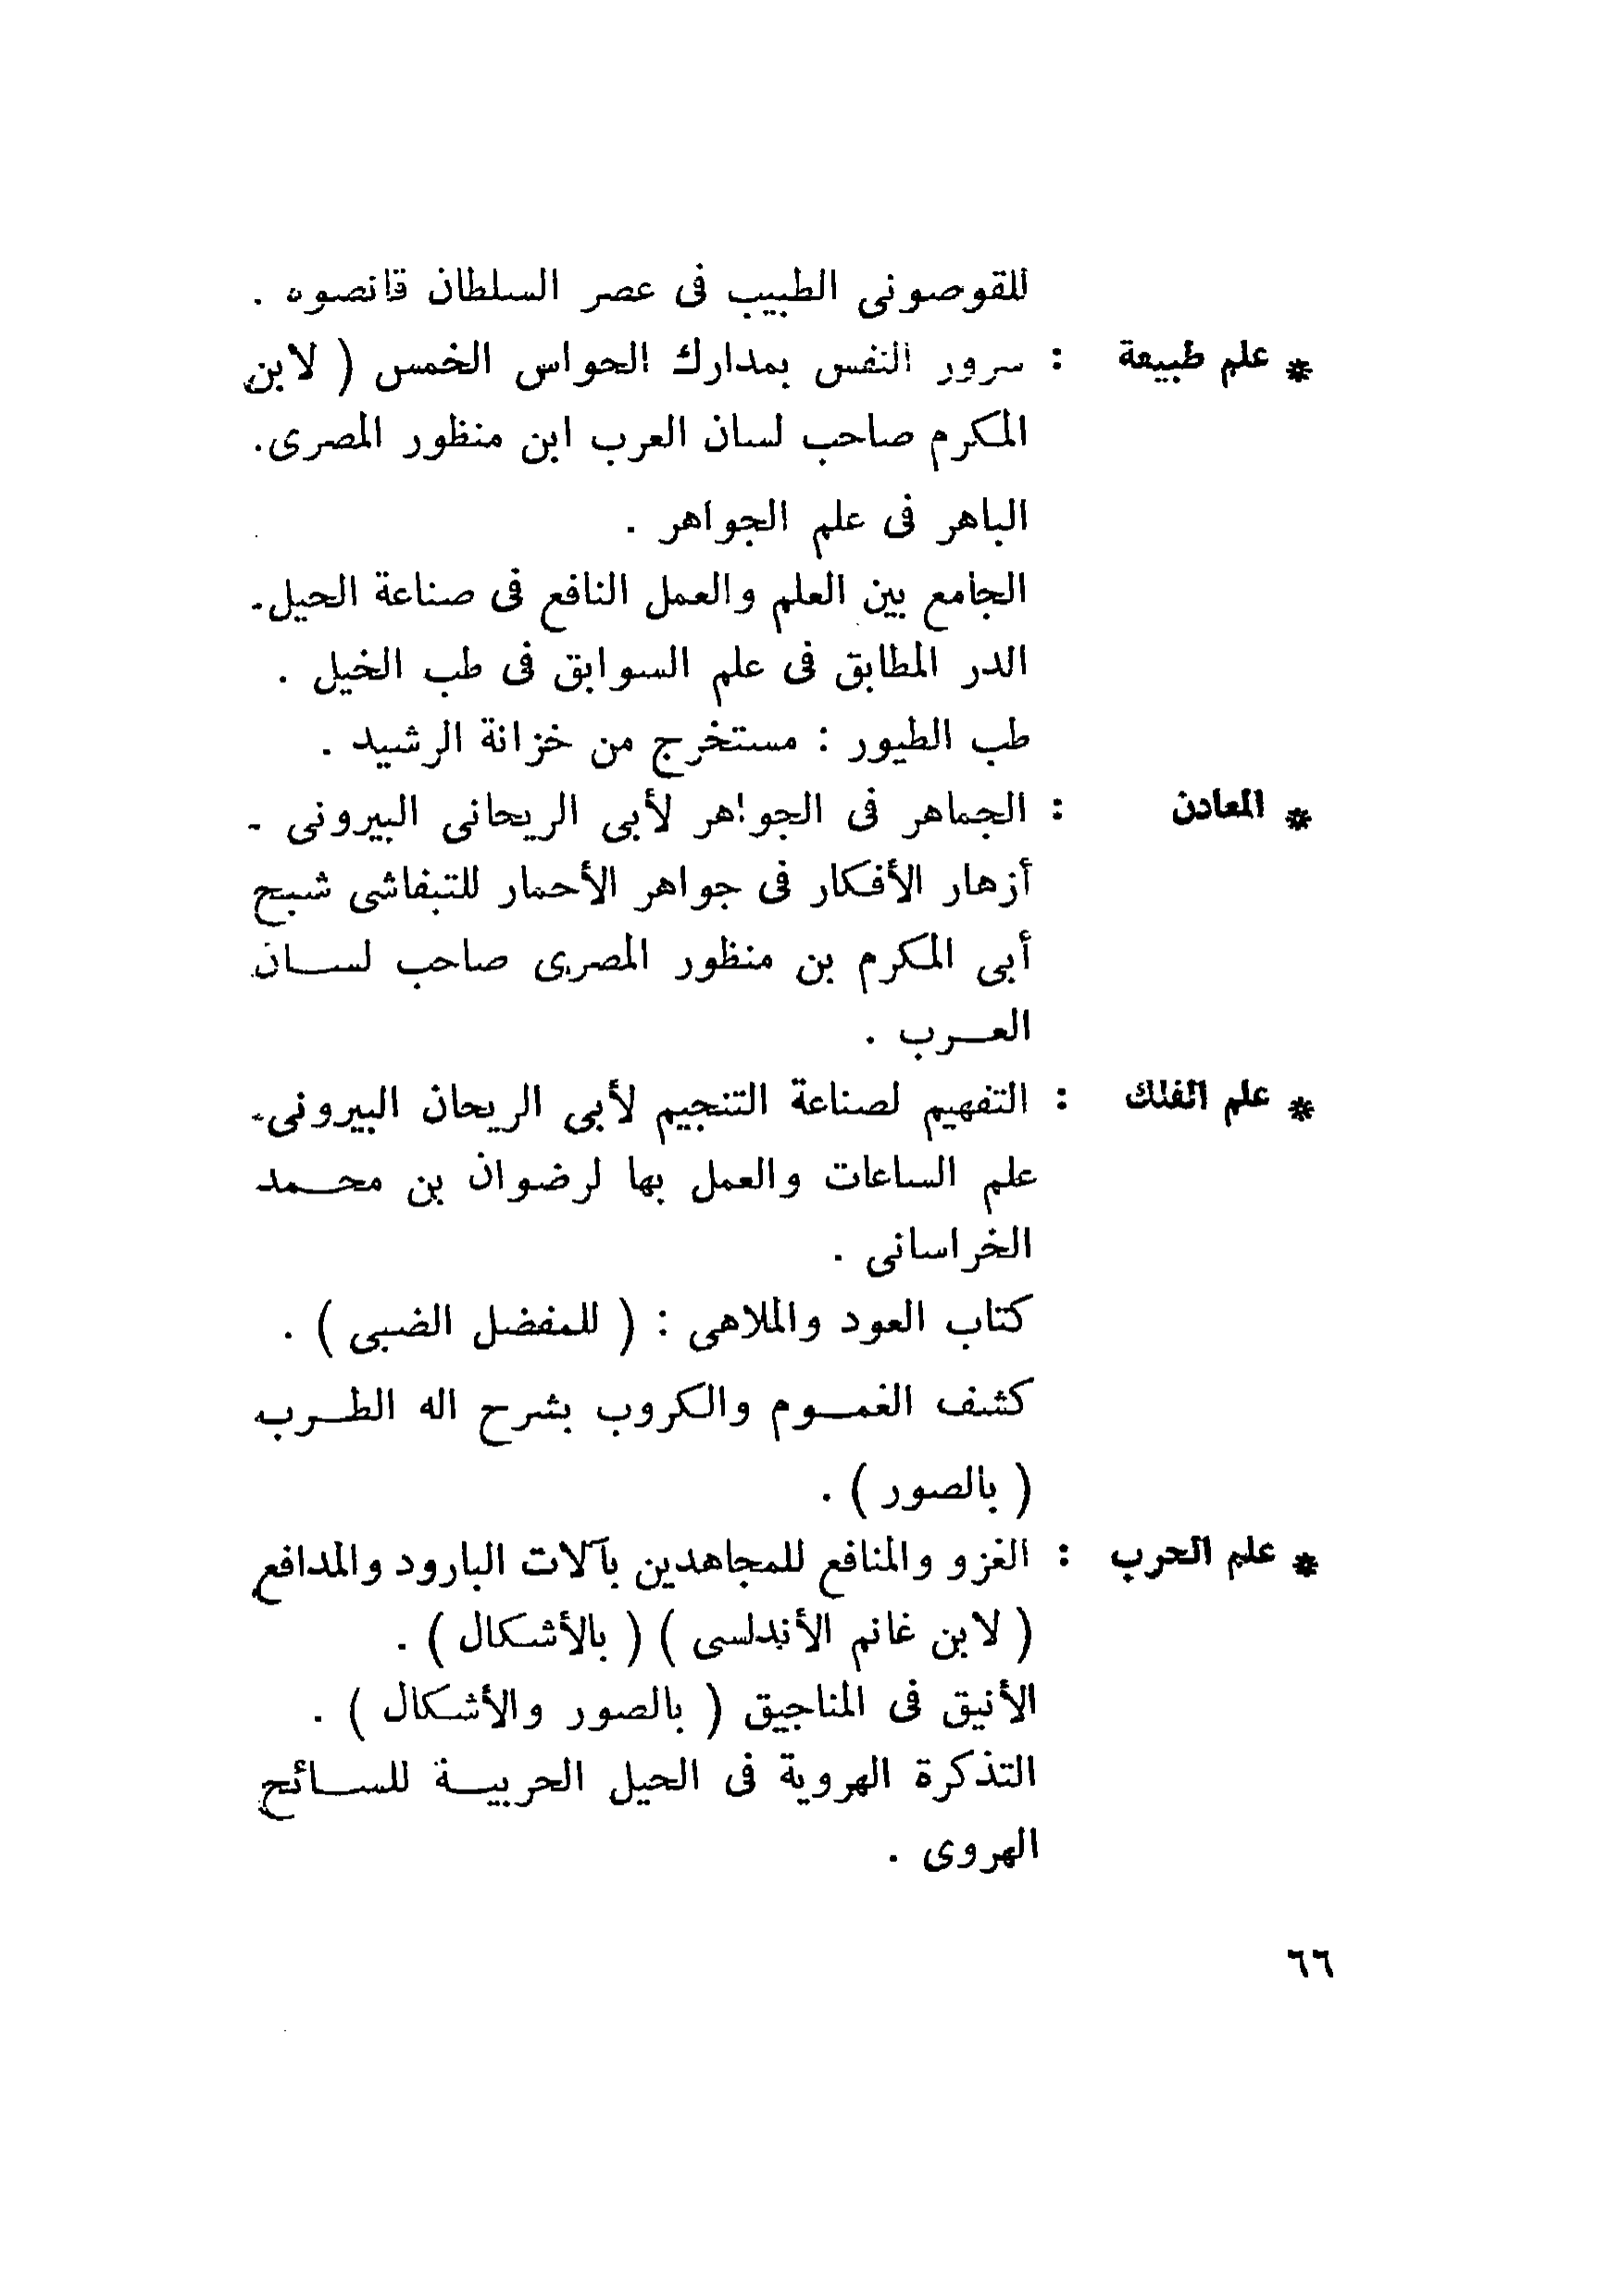 للقوصونى الطبيب فى عصر السلطان قانصوه .
* علم طبيعة : سرور النفس بمدارك الحواس الخمس ( لابن
المكرم صاحب لسان العرب ابن منظور المصرى.
الباهر فى علم الجواهر .
الجامع بين العلم والعمل النافع فى صناعة الحيل.
الدر المطابق فى علم السوابق فى طب الخيل .
طب الطيور : مستخرج من خزانة الرشيد .
* المعادن : الجماهر فى الجواهر لأبى الريحانى البيرونى -
أزهار الأفكار فى جواهر الأحمار للتبفاشى شبح
أبى المكرم بن منظور المصرى صاحب لســان
العــرب .
* علم الفلك : التفهيم لصناعة التنجيم لأبى الريحان البيرونى.
علم الساعات والعمل بها لرضوان بن محــمد
الخراسانى .
كتاب العود والملاهى : ( للمفضل الضبى ) .
كشف الغمــوم والكروب بشرح اله الطــرب
( بالصور ) .
* علم الحرب : الغزو والمنافع للمجاهدين بآلات البارود والمدافع
( لابن غانم الأندلسى ) ( بالأشكال ) .
الأنيق فى المناجيق ( بالصور والأشكال ) .
التذكرة الهروية فى الحيل الحربيــة للســائح
الهروى .
٦٦